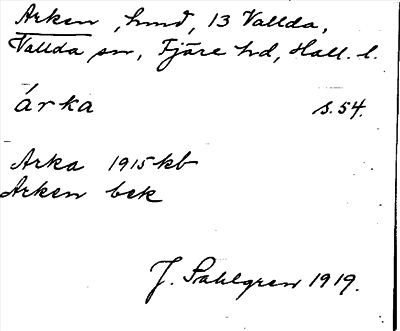 Arken, hmd, 13 Vallda,
Vallda sn, Fjäre hd, Hall. l.
árka s. 54.
Arka 1915 kb
Arken bek
J. Sahlgren 1919.